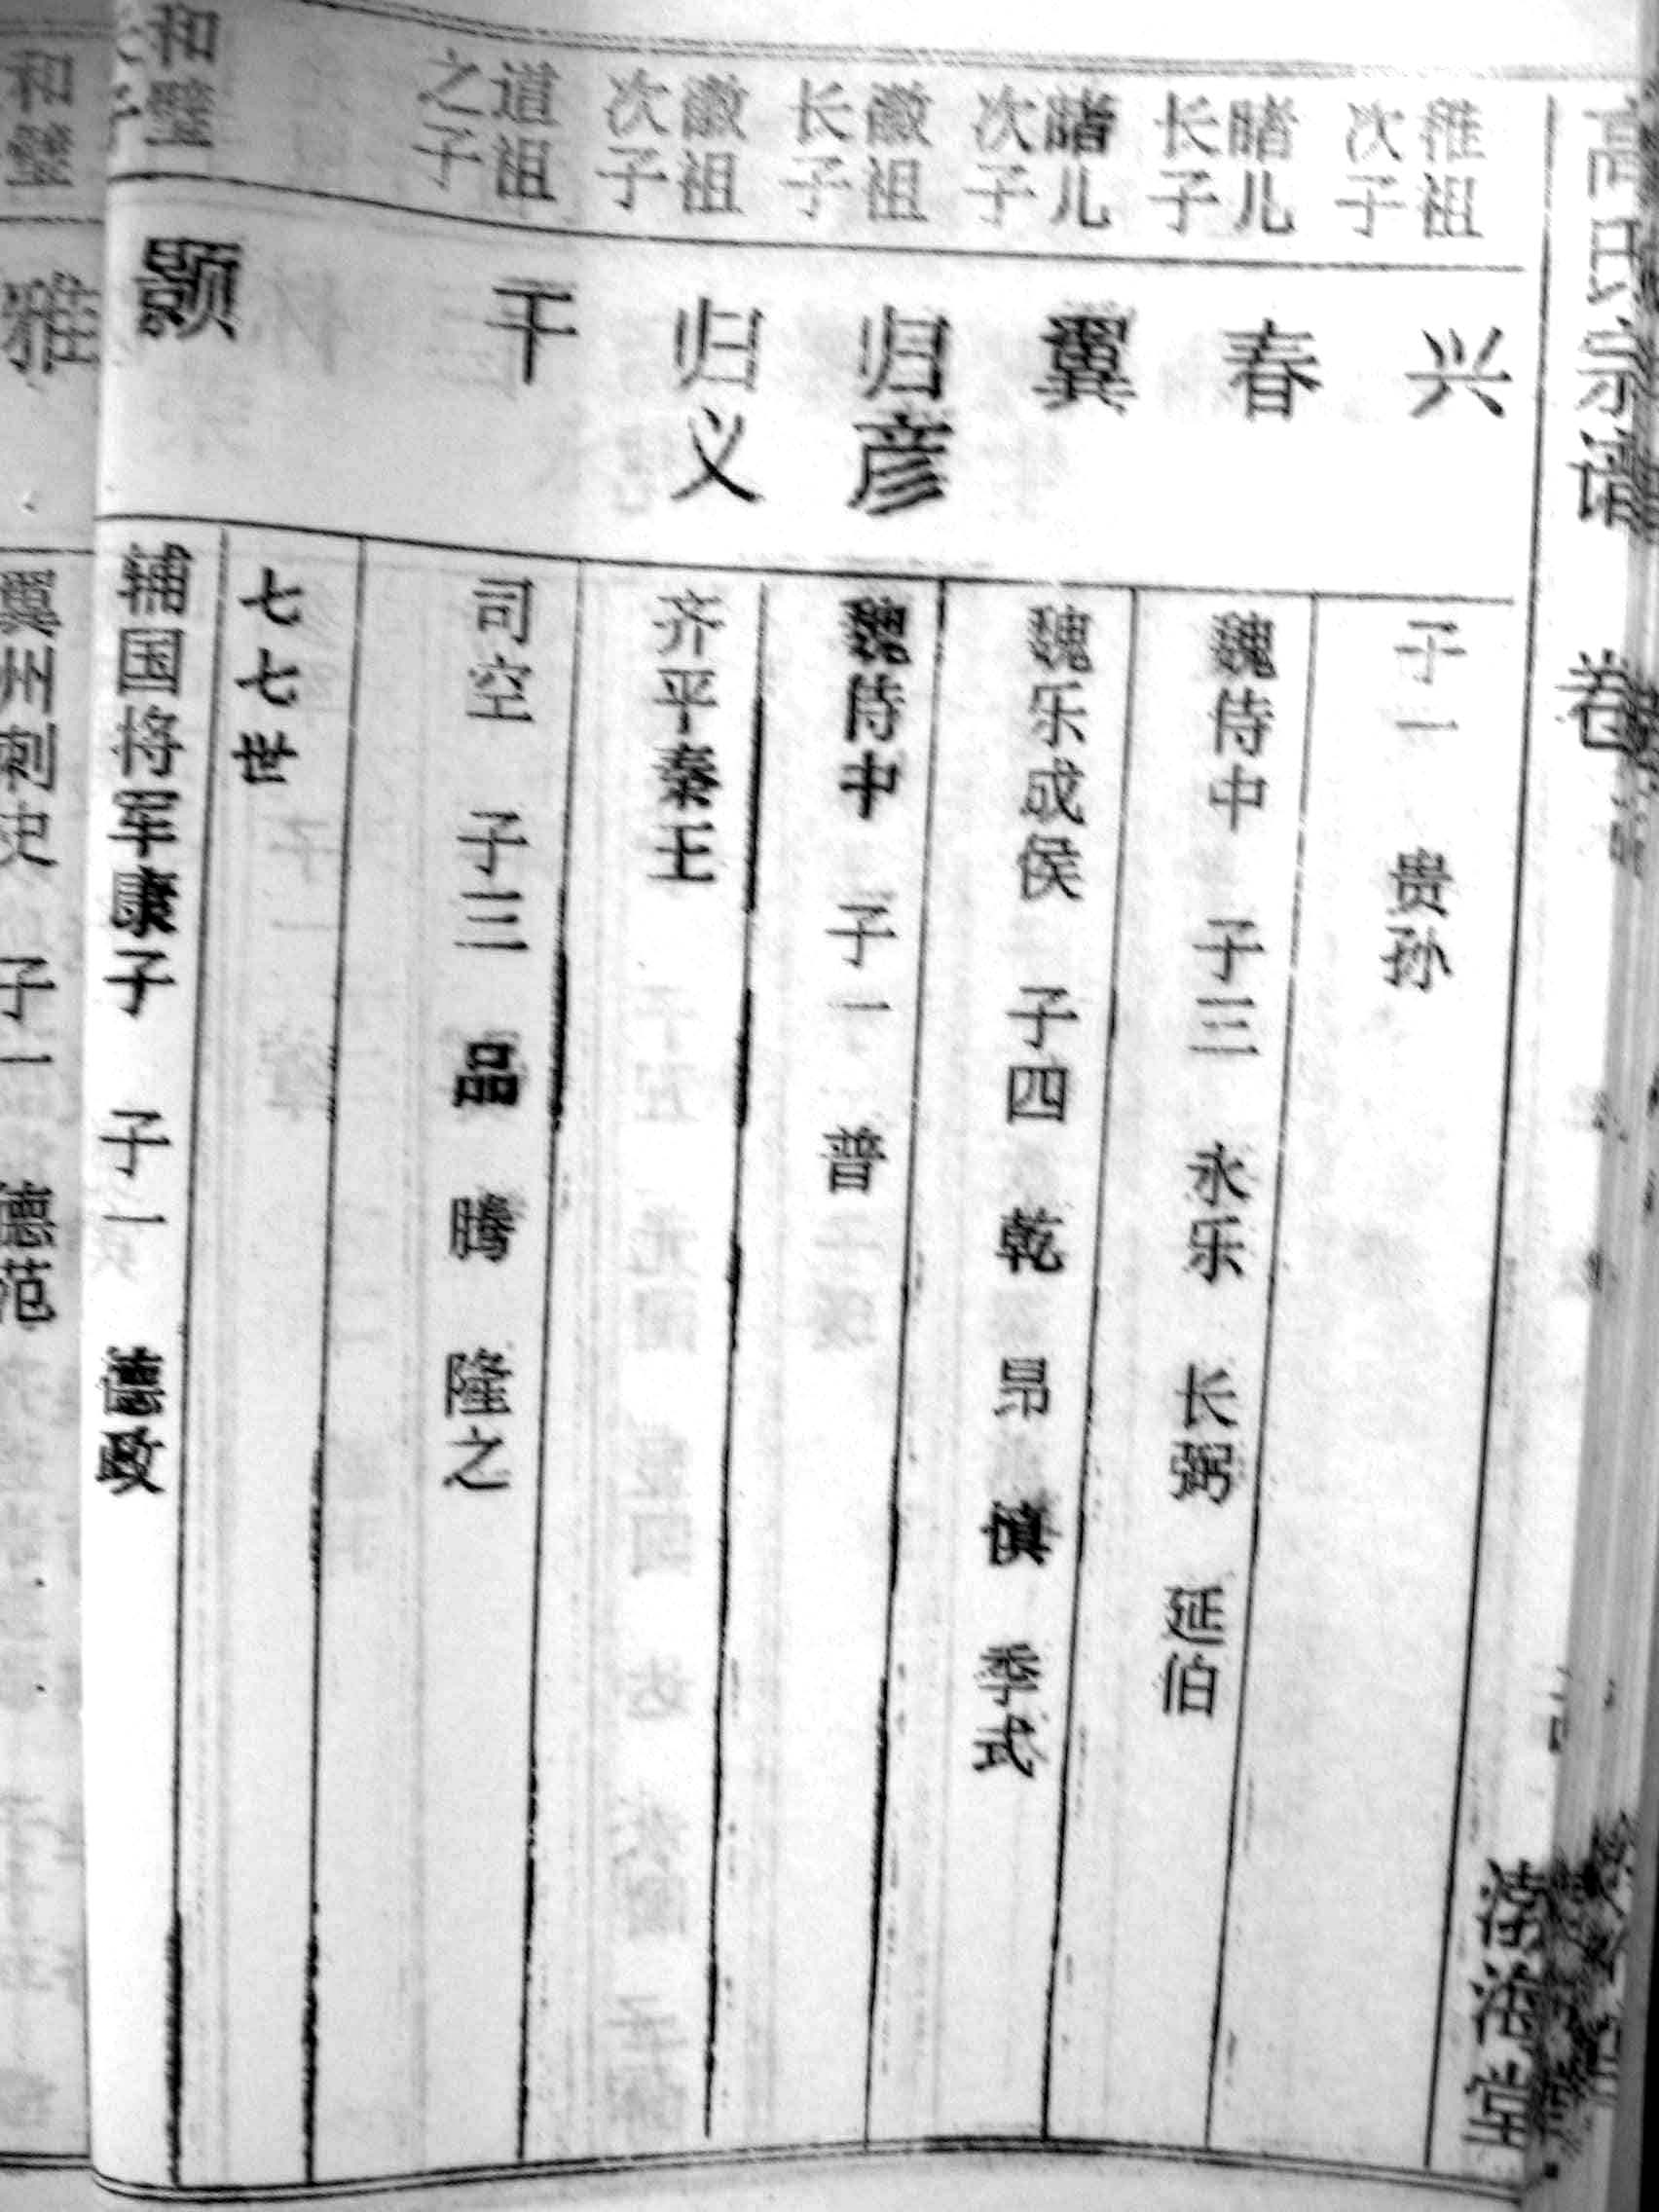 高氏宗谱 卷
渤海堂
稚祖次子
兴
子一 贵孙
睹儿长子
春
魏侍中 子三 永乐 长弼 延伯
睹儿次子
翼
魏乐成侯 子四 乾 昂 慎 季式
徽祖长子
归彦
魏侍中 子一 普
徽祖次子
归义
齐平秦王
道祖之子
干
司空 子三 品 腾 隆之
七七世
和璧
颢
辅国将军康子 子一 德政
和璧
雅
翼州刺史 子一 德范